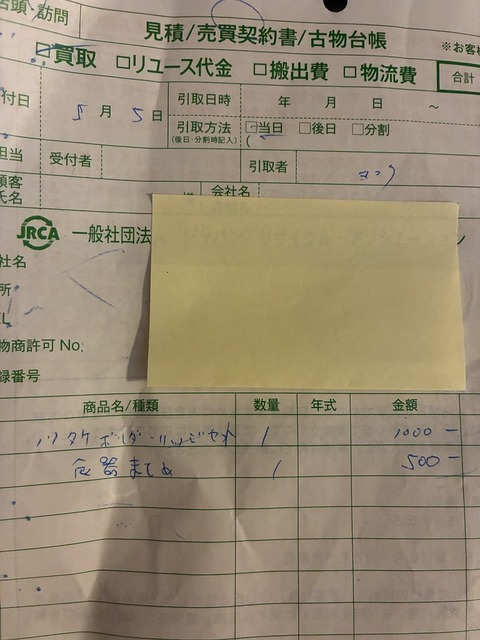 店頭・訪問
見積/売買契約書/古物台帳
※お客様
☑買取 □リユース代金 □搬出費 □物流費 合計
付日 5月5日 引取日時 年 月 日 ～
引取方法 (後日・分割時記入) ☑当日 □後日 □分割
(
担当 受付者 引取者
顧客 氏名 様 会社名
JRCA 一般社団法
社名
所
EL
物商許可 No.
録番号
商品名/種類 数量 年式 金額
1 1000 ー
食器まとめ 1 500 ー